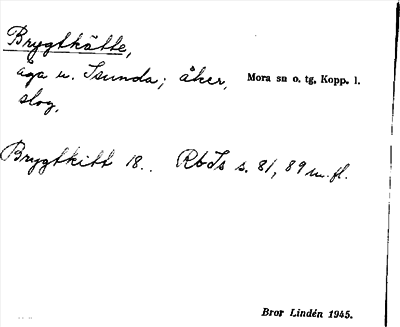 Brygtkätte,
äga u. Isunda; åker, Mora sn o. tg. Kopp. l.
slog,
Brygtkitt 18.. RbIs s. 81, 89 m. fl.
Bror Lindén 1945.